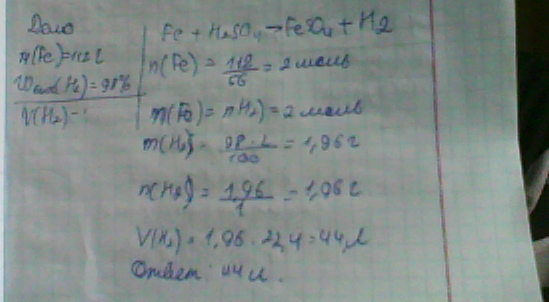 Дано
m(Fe)=112г
Wвых(H₂)=98%
V(H₂)-
Fe + H₂SO₄→FeSO₄ + H₂
n(Fe) = 112/56 = 2 моль
n(Fe) = n(H₂) = 2 моль
m(H₂) = 98·2/100 = 1,96г
n(H₂) = 1,96/1 = 1,96г
V(H₂) = 1,96 · 22,4 = 44л
Ответ: 44л.